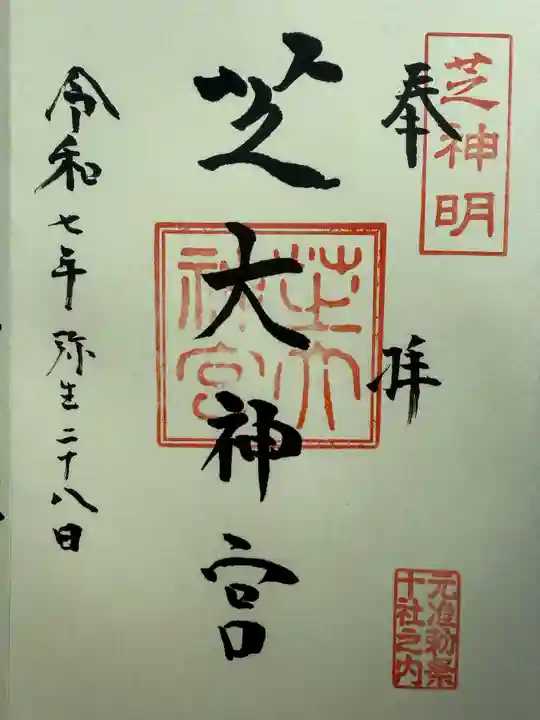 芝神明
奉拝
元准勅祭
十社之内
芝大神宮
芝大
神宮
令和七年弥生二十八日